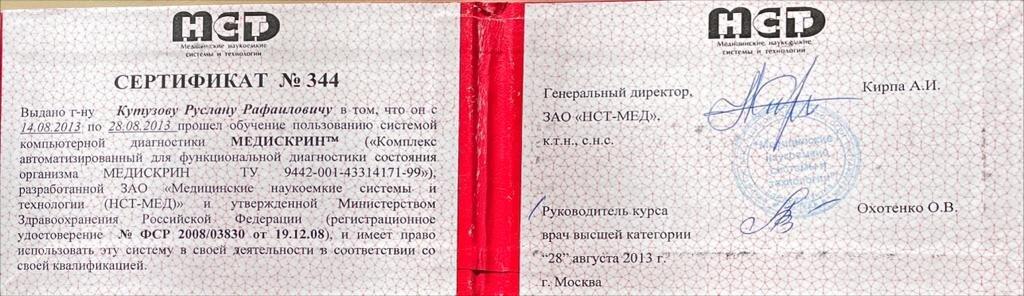 НСТ
Медицинские наукоемкие
системы и технологии
СЕРТИФИКАТ № 344
Выдано г-ну Кутузову Руслану Рафаиловичу в том, что он с
14.08.2013 по 28.08.2013 прошел обучение пользованию системой
компьютерной диагностики МЕДИСКРИН™ («Комплекс
автоматизированный для функциональной диагностики состояния
организма МЕДИСКРИН ТУ 9442-001-43314171-99»),
разработанной ЗАО «Медицинские наукоемкие системы и
технологии (НСТ-МЕД)» и утвержденной Министерством
Здравоохранения Российской Федерации (регистрационное
удостоверение № ФСР 2008/03830 от 19.12.08), и имеет право
использовать эту систему в своей деятельности в соответствии со
своей квалификацией.
НСТ
Медицинские наукоемкие
системы и технологии
Генеральный директор, Кирпа А.И.
ЗАО «НСТ-МЕД»,
к.т.н., с.н.с.
"Медицинские
наукоемкие
системы и
технологии"
Руководитель курса Охотенко О.В.
врач высшей категории
“28” августа 2013 г.
г. Москва